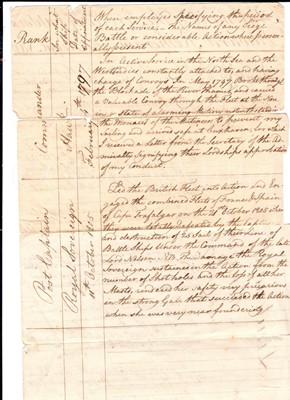 Rank
Ship
Date of
When employed Specifying the period
of each Service — the Name of any Siege
Battle or considerable Action where person-
ally present
Commander
7th February 1797
In Active Service in the North Sea and the
West Indies constantly attached to, and having
charge of Convoys. In May 1797 Broke through
the Blockade of the River Thames, and carried
a valuable Convoy through the Fleet at the Nore
in a state of alarming Mutiny notwithstanding
the Menaces of the Mutineers to prevent my
sailing and arrived safe at Cuxhaven, for which
I received a letter from the Secretary of the Ad-
miralty signifying their Lordships approbation
of my Conduct.
Post Captain
Royal Sovereign
10th October 1805
Led the British Fleet into Action and En-
gaged the combined Fleets of France & Spain
off Cape Trafalgar on the 21st October 1805 when
they were totally defeated by the capture
and destruction of 25 Sail of their Line of
Battle Ships Under the Command of the late
Lord Nelson. N.B. The damage the Royal
Sovereign sustained in the Action from the
number of Shot holes and the loss of all her
Masts, rendered her safety very precarious
in the strong Gale that succeeded the Action
when she was very near foundering